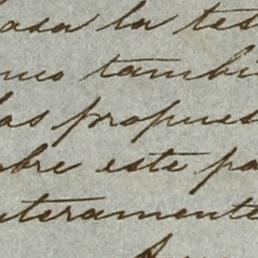 casa la tes
nco tambi
las propues
obre este pa
nteramente